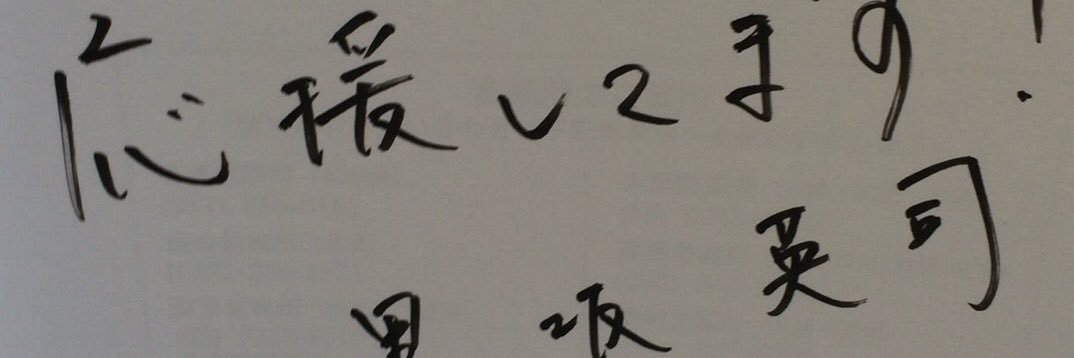 応援してます!
男坂 英司